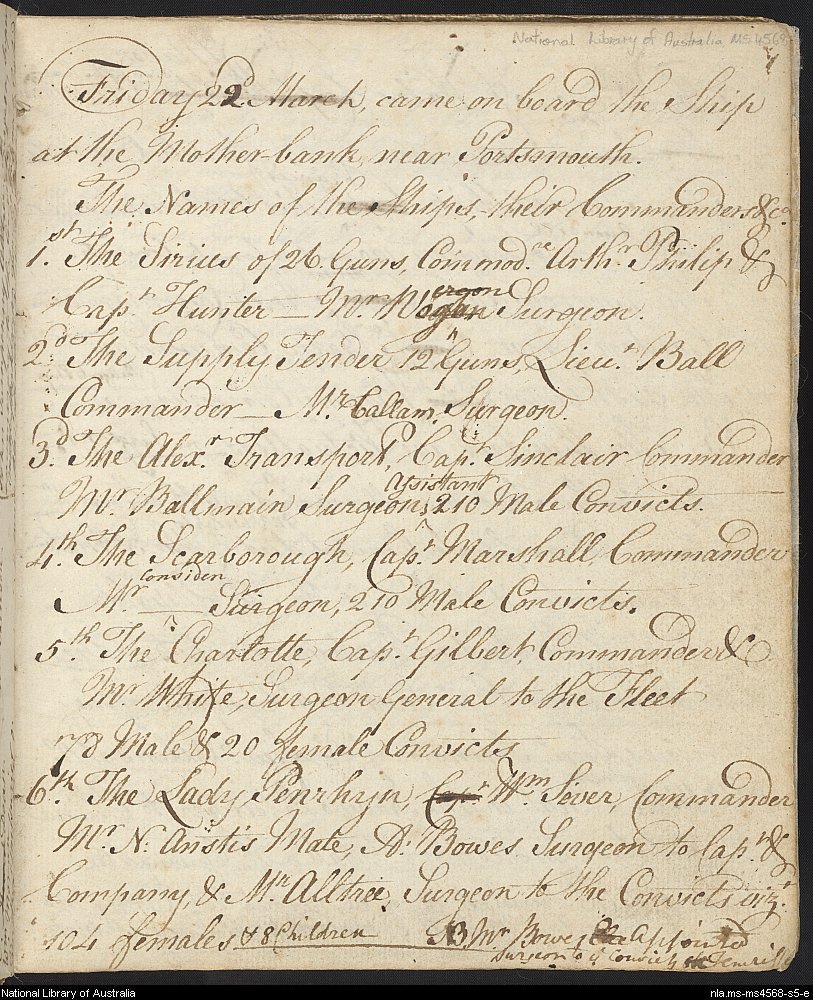 National Library of Australia MS 4568
1
Friday 22d March, came on board the Ship
at the Mother-bank, near Portsmouth.
The Names of the Ships, their Commanders &ca
1.st The Sirius of 26 Guns, Commod.re Arth.r Philip &
Cap.t Hunter — Mr. Worgon Surgeon.
2.d The Supply Tender 12 Guns, Lieu.t Ball
Commander — Mr. Callam, Surgeon.
3.d The Alex.r Transport, Cap.t Sinclair Commander
Assistant
Mr. Ballmain Surgeon, 210 Male Convicts.
4.th The Scarborough, Cap.t Marshall, Commander
Considen
Mr. — Surgeon, 210 Male Convicts.
5.th The Charlotte, Cap.t Gilbert, Commander &
Mr. White, Surgeon General to the Fleet
78 Male & 20 female Convicts
6.th The Lady Penrhyn, Cap.t Wm Sever, Commander
Mr. N. Anstis Mate, A. Bowes Surgeon to Cap.t &
Company, & Mr. Alltree, Surgeon to the Convicts viz.t
104 females & 8 Children NB Mr. Bowes Appointed
Surgeon to ye Convicts
National Library of Australia
nla.ms-ms4568-s5-e